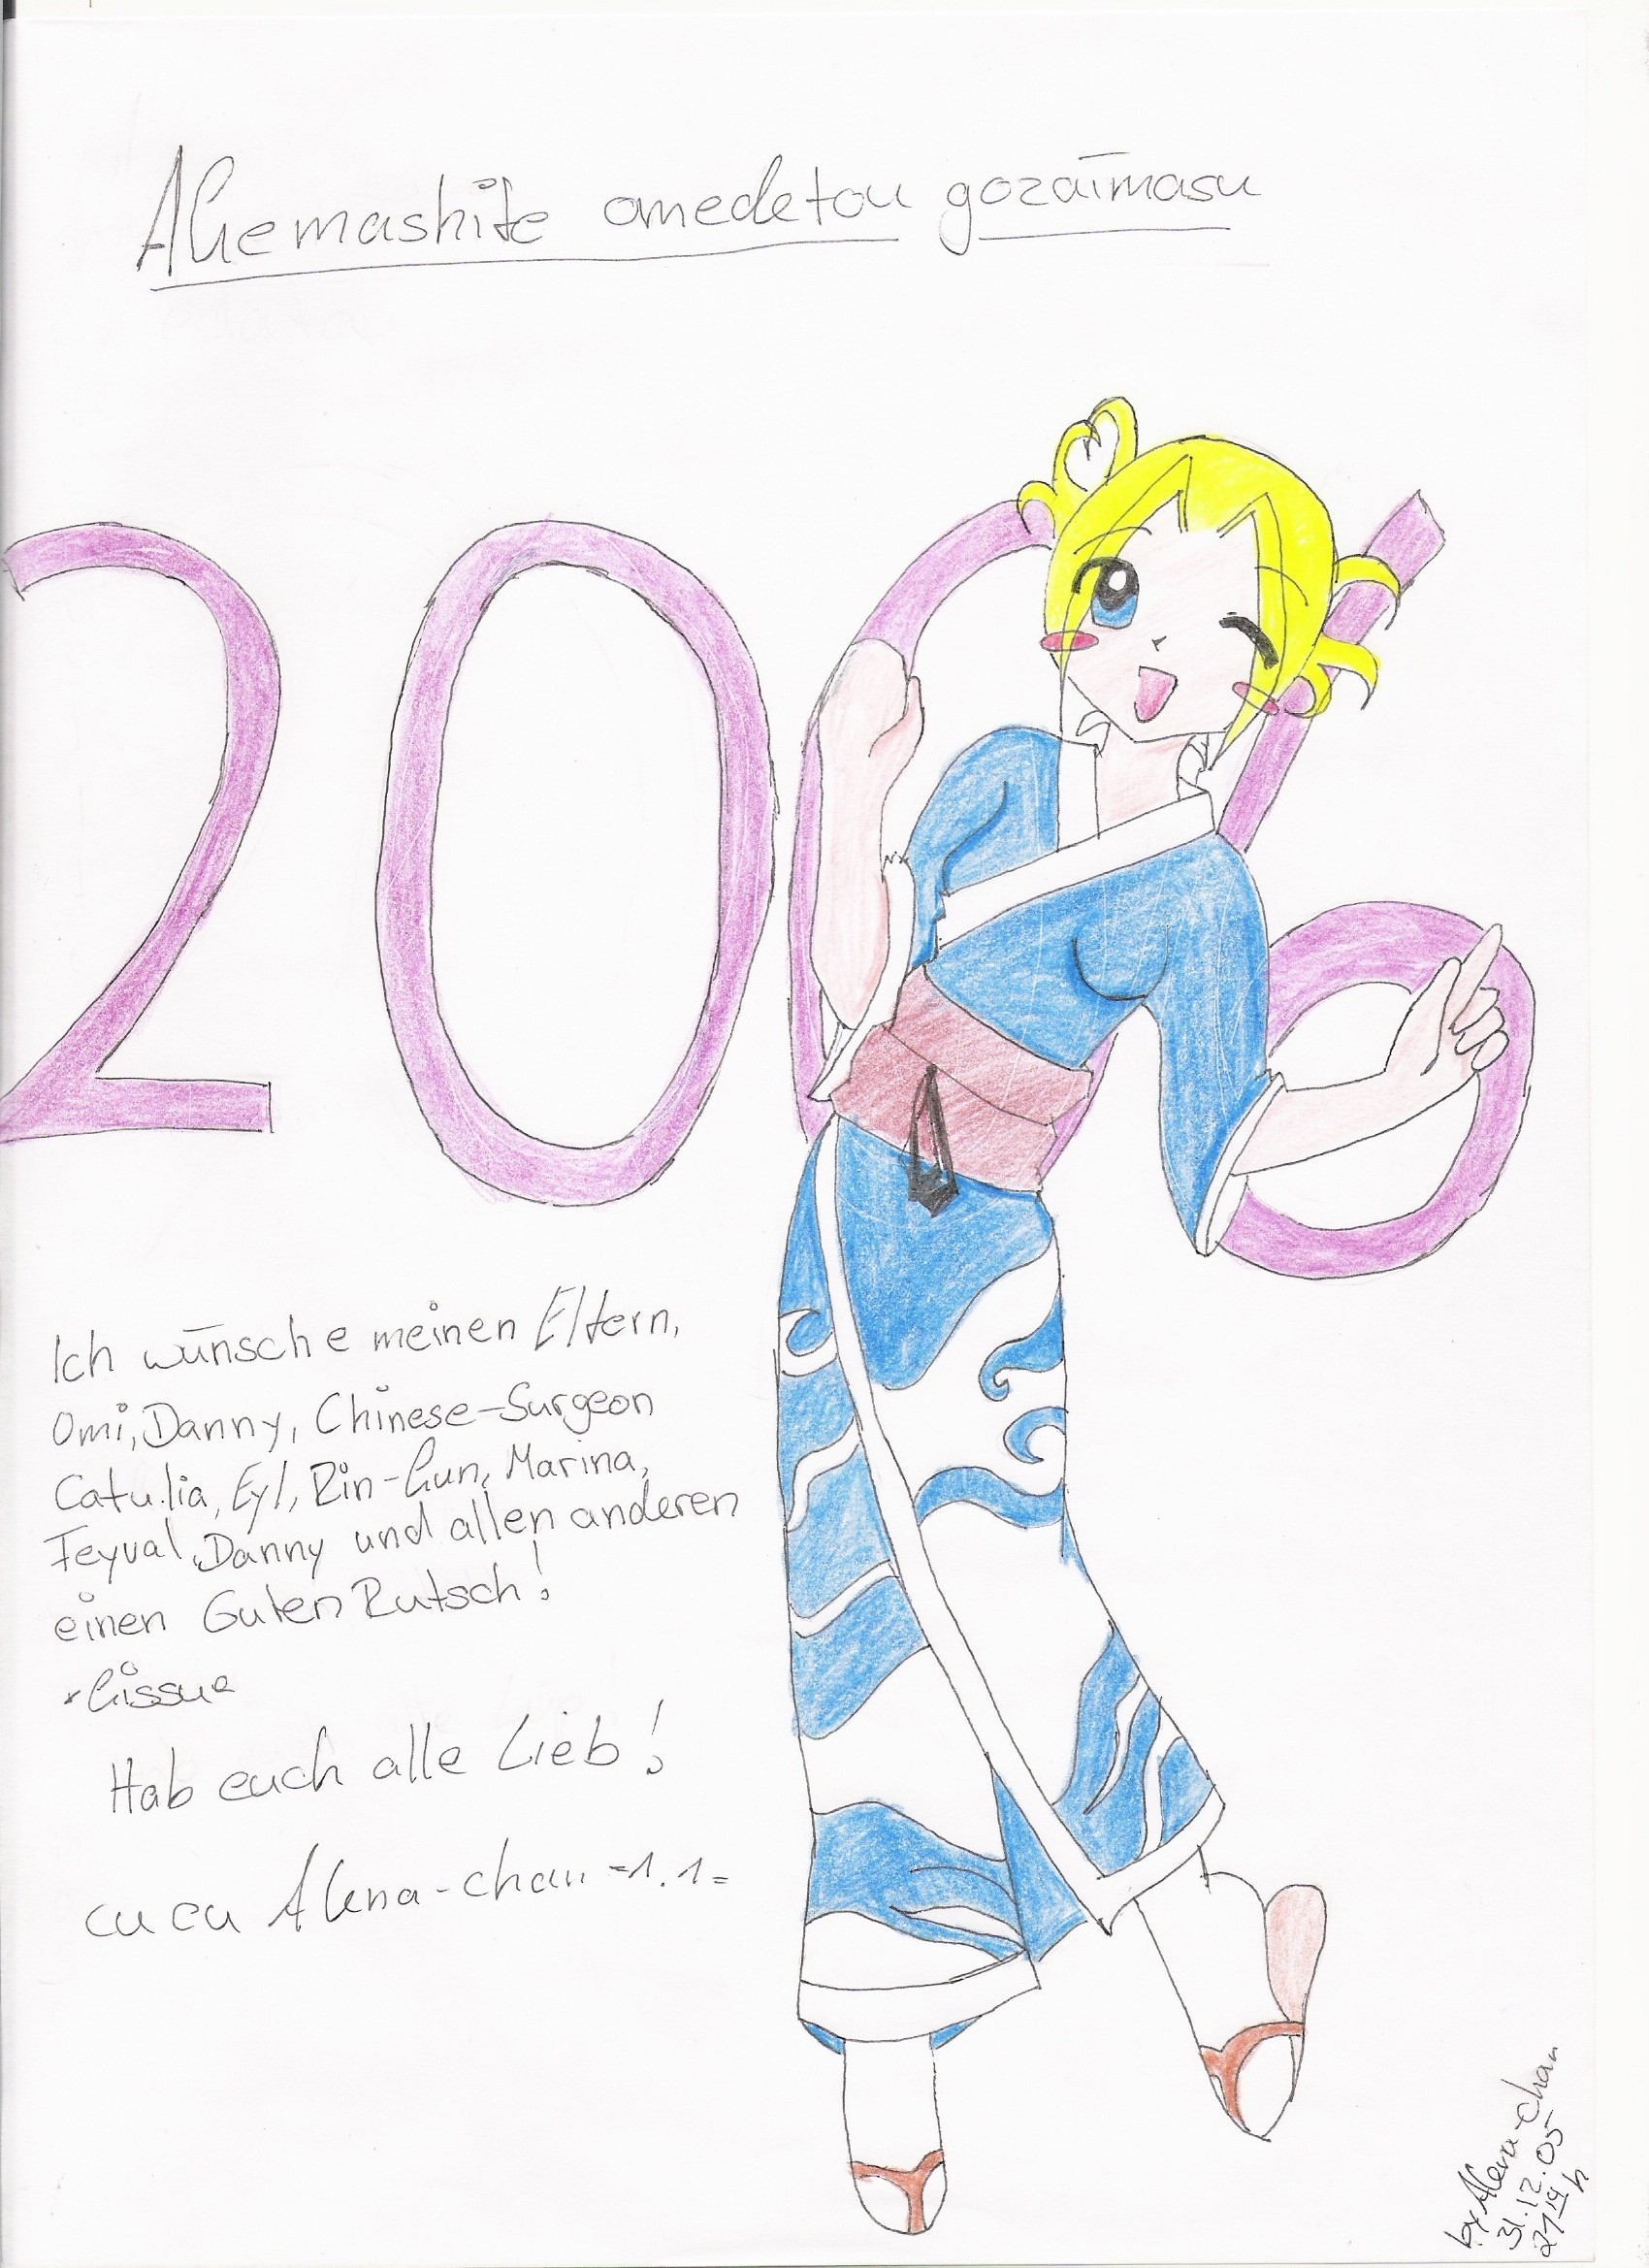 Akemashite omedetou gozaimasu
2006
Ich wünsche meinen Eltern,
Omi, Danny, Chinese-Surgeon
Catulia, Eyl, Rin-kun, Marina,
Feyval, Danny und allen anderen
einen Guten Rutsch!
*kissu*
Hab euch alle Lieb!
cu cu Akena-chan =1.1=
by Akena-chan
31.12.05
21 19 h